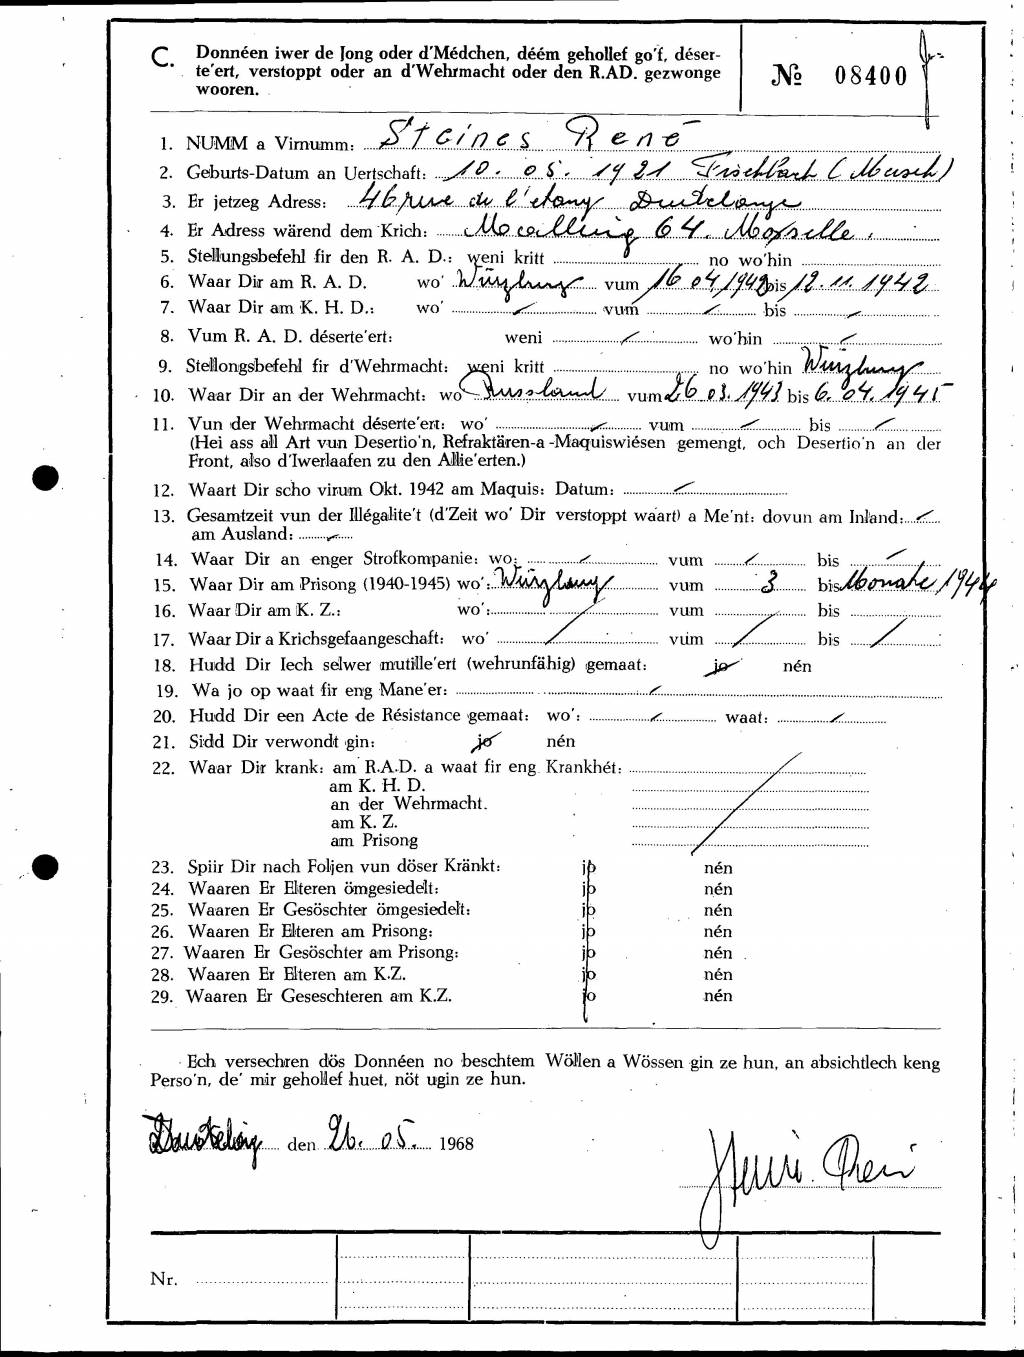 C. Donnéen iwer de Jong oder d'Médchen, déém gehollef go'f, déser-
te'ert, verstoppt oder an d'Wehrmacht oder den R.AD. gezwonge
wooren.
№ 08400
1. NUMM a Virnumm: Steines René
2. Geburts-Datum an Uertschaft: 10. 05. 1921 Fischbach (Mersch)
3. Er jetzeg Adress: 46 rue de l'étang Dudelange
4. Er Adress wärend dem Krich: 64. Moselle.
5. Stellungsbefehl fir den R. A. D.: weni kritt no wo'hin
6. Waar Dir am R. A. D. wo' Würzburg vum 16 04 1942 bis 12. 11. 1942
7. Waar Dir am K. H. D.: wo' vum bis
8. Vum R. A. D. déserte'ert: weni wo'hin
9. Stellongsbefehl fir d'Wehrmacht: weni kritt no wo'hin Würzburg
10. Waar Dir an der Wehrmacht: wo Russland vum 26 03. 1943 bis 6. 04. 1945
11. Vun der Wehrmacht déserte'ert: wo' vum bis
(Hei ass all Art vun Desertio'n, Refraktären-a-Maquiswiésen gemengt, och Desertio'n an der
Front, also d'Iwerlaafen zu den Allie'erten.)
12. Waart Dir scho virum Okt. 1942 am Maquis: Datum:
13. Gesamtzeit vun der Illégalite't (d'Zeit wo' Dir verstoppt waart) a Me'nt: dovun am Inland:
am Ausland:
14. Waar Dir an enger Strofkompanie: wo: vum bis
15. Waar Dir am Prisong (1940-1945) wo': Würzburg vum 3 bis Monate 1944
16. Waar Dir am K. Z.: wo': vum bis
17. Waar Dir a Krichsgefaangeschaft: wo' vum bis
18. Hudd Dir Iech selwer mutille'ert (wehrunfähig) gemaat: jo nén
19. Wa jo op waat fir eng Mane'er:
20. Hudd Dir een Acte de Résistance gemaat: wo': waat:
21. Sidd Dir verwondt gin: jo nén
22. Waar Dir krank: am R.A.D. a waat fir eng Krankhét:
am K. H. D.
an der Wehrmacht.
am K. Z.
am Prisong
23. Spiir Dir nach Foljen vun döser Kränkt: jo nén
24. Waaren Er Elteren ömgesiedelt: jo nén
25. Waaren Er Gesöschter ömgesiedelt: jo nén
26. Waaren Er Elteren am Prisong: jo nén
27. Waaren Er Gesöschter am Prisong: jo nén
28. Waaren Er Elteren am K.Z. jo nén
29. Waaren Er Geseschteren am K.Z. jo nén
Ech versechren dös Donnéen no beschtem Wöllen a Wössen gin ze hun, an absichtlech keng
Perso'n, de' mir gehollef huet, nöt ugin ze hun.
den 26. 05. 1968
Nr.